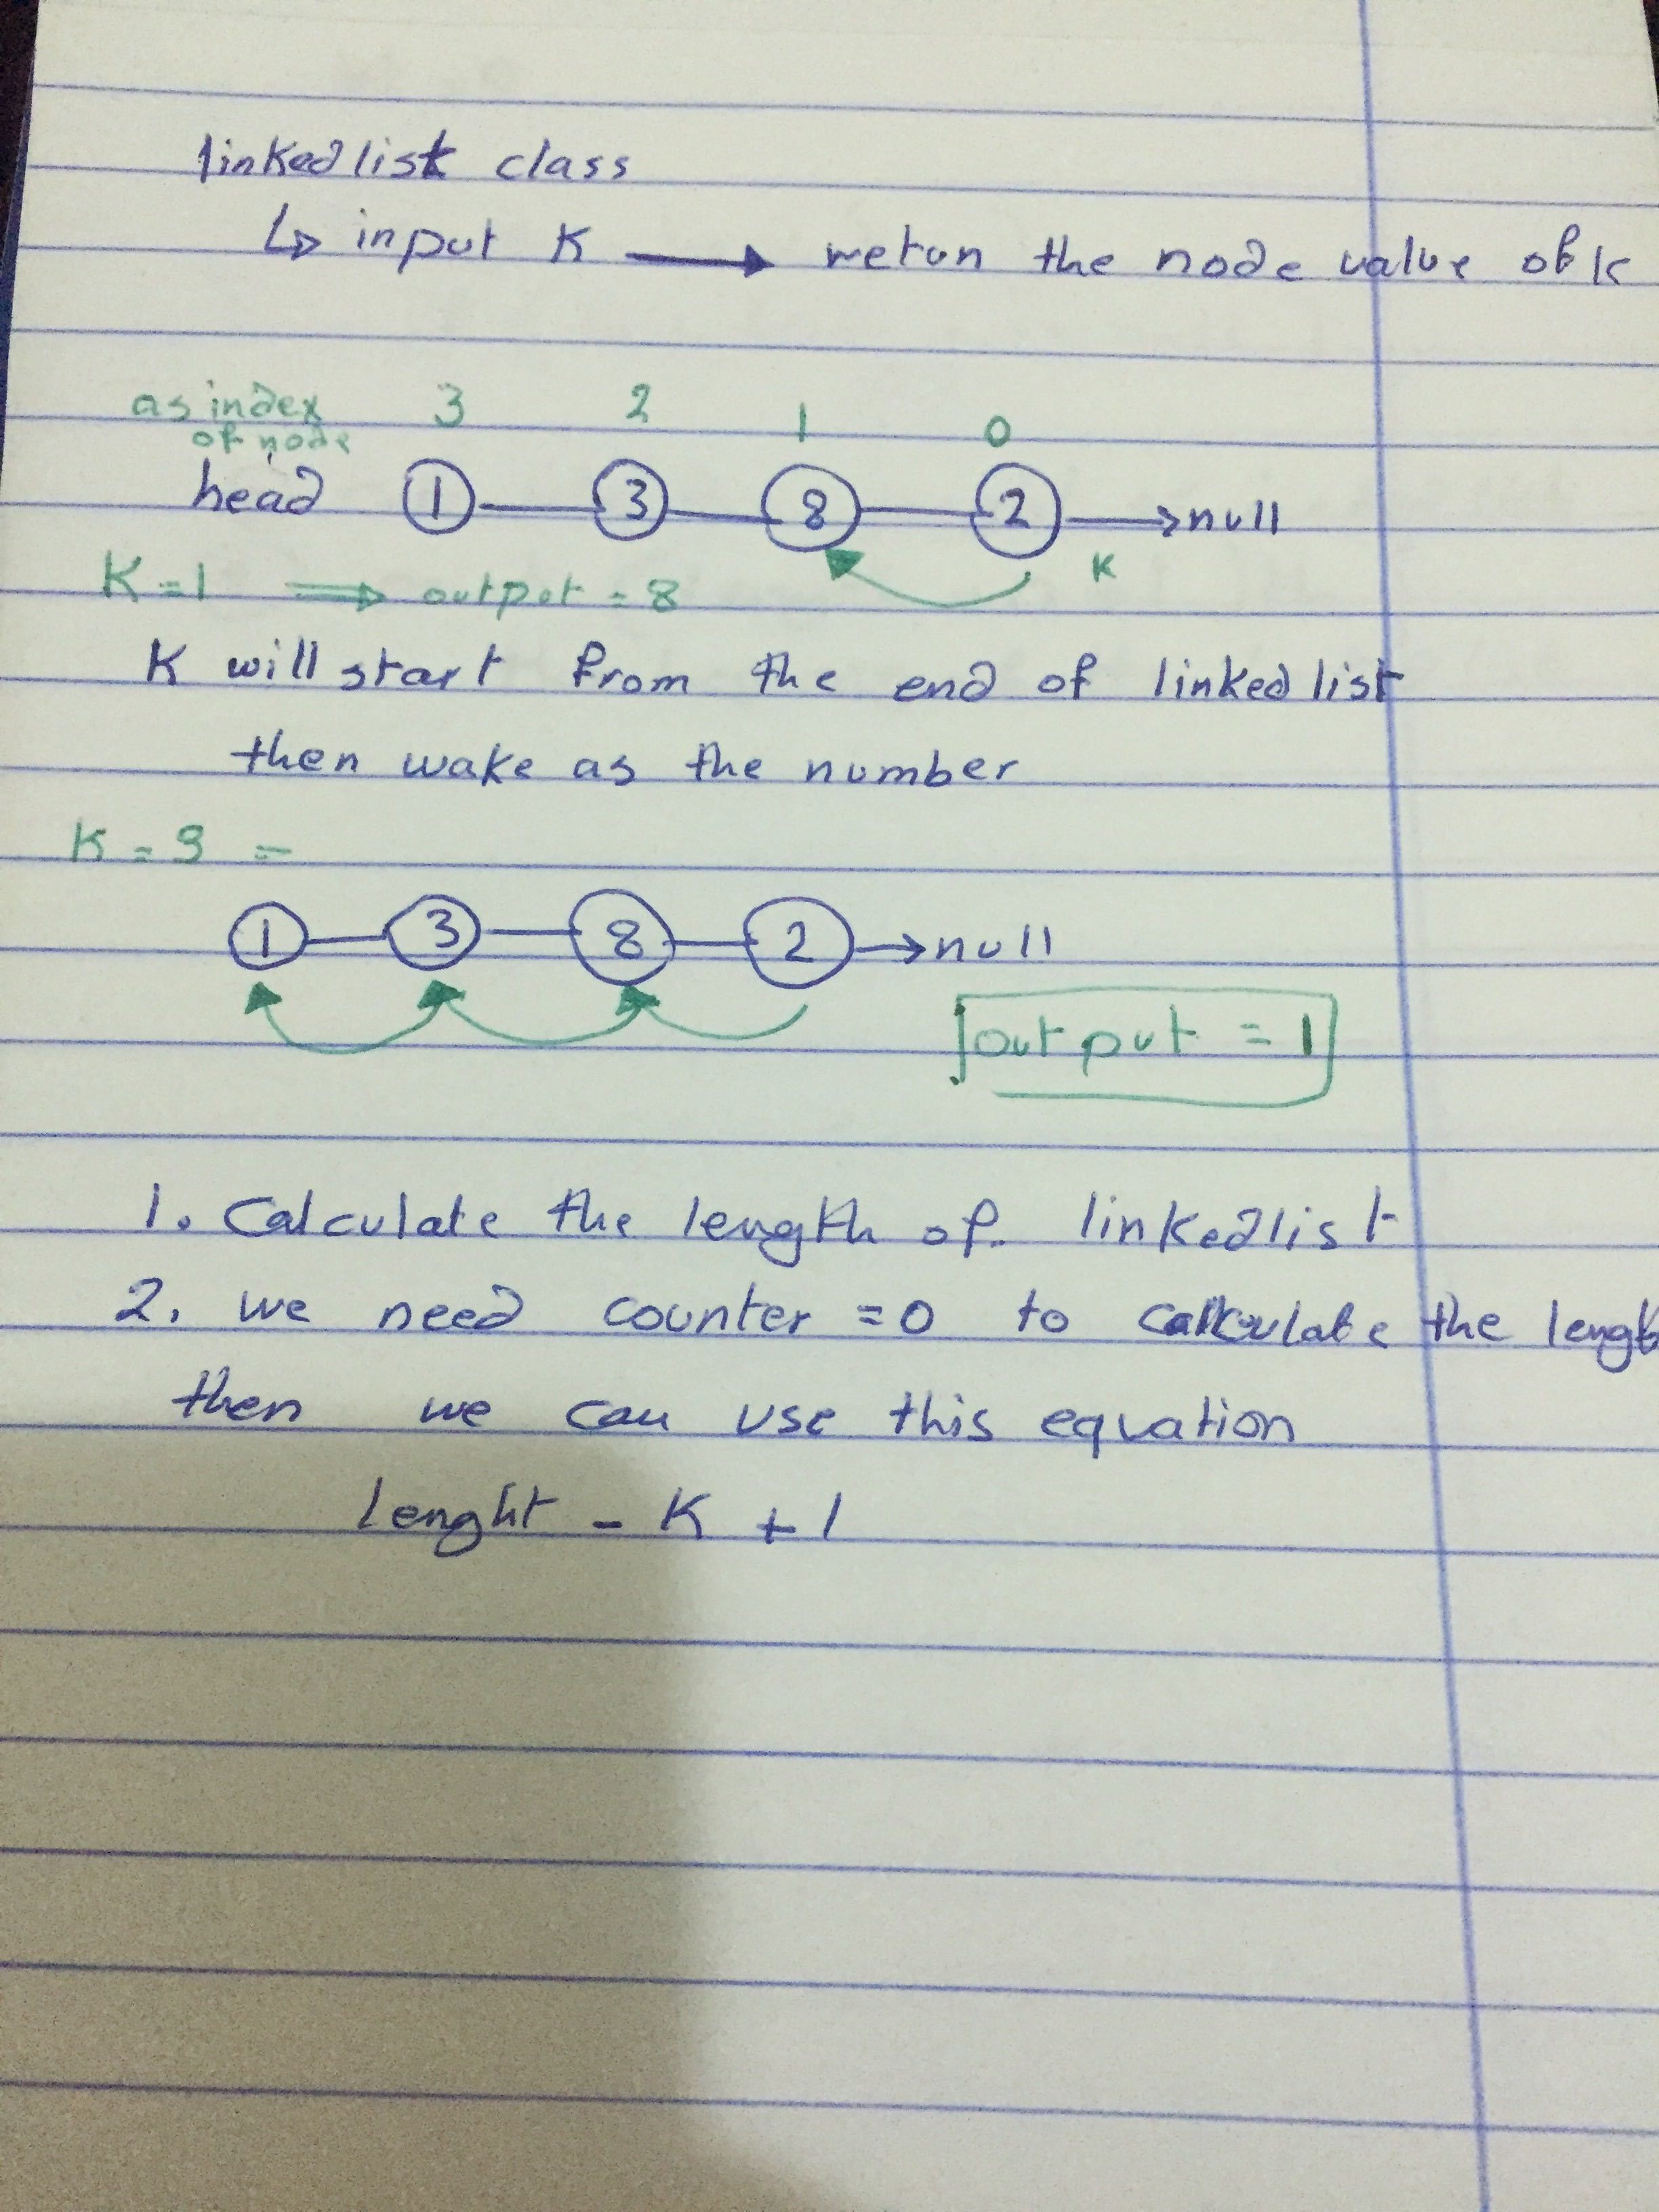 linkedlist class
input K → retun the node value of k
as index of node 3 2 1 0
head 1 3 8 2 → null
K
K = 1 ⇒ output = 8
K will start from the end of linked list
then wake as the number
K = 3 =
1 3 8 2 → null
output = 1
1. Calculate the length of linkedlist
2. we need counter = 0 to calculate the length
then we can use this equation
lenght - K + 1